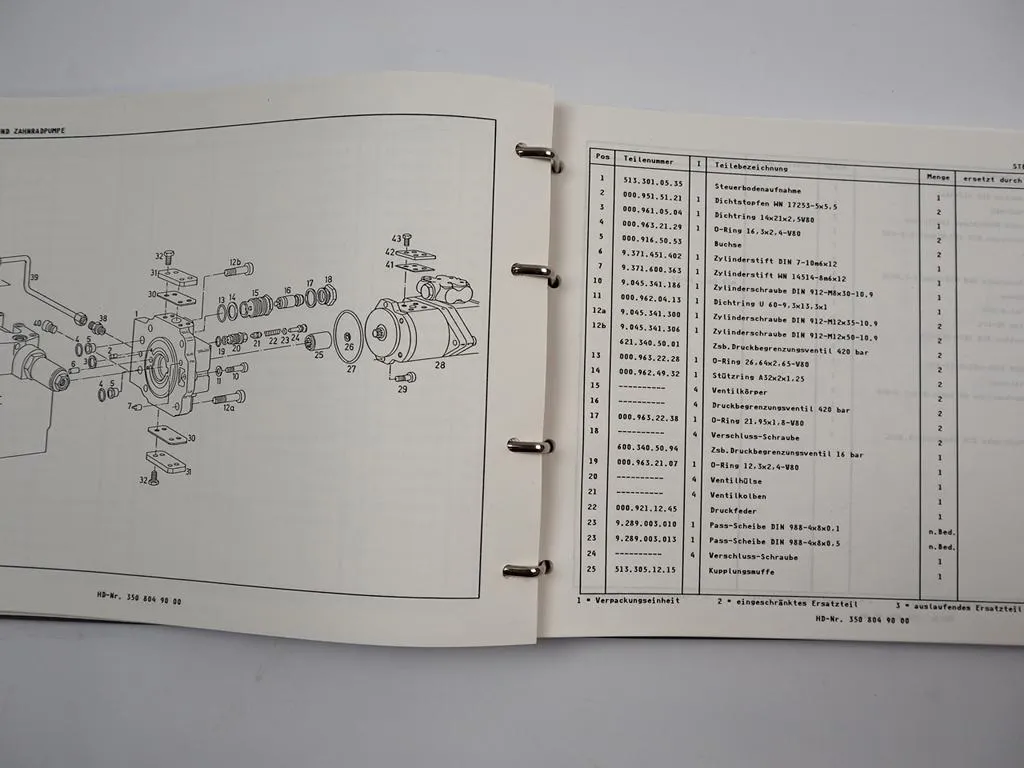 ND ZAHNRADPUMPE
HD-Nr. 350 804 90 00
STE
Pos Teilenummer I Teilebezeichnung Menge ersetzt durch
1 513.301.05.35 Steuerbodenaufnahme 1
2 000.951.31.21 1 Dichtstopfen WN 17253-5x5,5 2
3 000.961.05.04 1 Dichtring 14x21x2,5V80 2
4 000.963.21.29 1 O-Ring 16,3x2,4-V80 2
5 000.916.50.53 Buchse 2
6 9.371.451.402 1 Zylinderstift DIN 7-10m6x12 2
7 9.371.600.363 1 Zylinderstift WN 14514-8m6x12 2
10 9.045.341.186 1 Zylinderschraube DIN 912-M8x30-10.9 2
11 000.962.04.13 1 Dichtring U 60-9,3x13,3x1 2
12a 9.045.341.300 1 Zylinderschraube DIN 912-M12x35-10.9 2
12b 9.045.341.306 1 Zylinderschraube DIN 912-M12x50-10.9 2
621.340.50.01 Zsb.Druckbegrenzungsventil 420 bar 2
13 000.963.22.28 1 O-Ring 26,64x2,65-V80 2
14 000.962.49.32 1 Stützring A32x2x1,25 2
15 ---------- 4 Ventilkörper 2
16 ---------- 4 Druckbegrenzungsventil 420 bar 2
17 000.963.22.38 1 O-Ring 21,95x1,8-V80 2
18 ---------- 4 Verschluss-Schraube 2
600.340.50.94 Zsb.Druckbegrenzungsventil 16 bar 1
19 000.963.21.07 1 O-Ring 12,3x2,4-V80 1
20 ---------- 4 Ventilhülse 1
21 ---------- 4 Ventilkolben 1
22 000.921.12.45 Druckfeder 1
23 9.289.003.010 1 Pass-Scheibe DIN 988-4x8x0.1 n.Bed.
23 9.289.003.013 1 Pass-Scheibe DIN 988-4x8x0.5 n.Bed.
24 ---------- 4 Verschluss-Schraube 1
25 513.305.12.15 Kupplungsmuffe 1
1 = Verpackungseinheit 2 = eingeschränktes Ersatzteil 3 = auslaufendes Ersatzteil
HD-Nr. 350 804 90 00